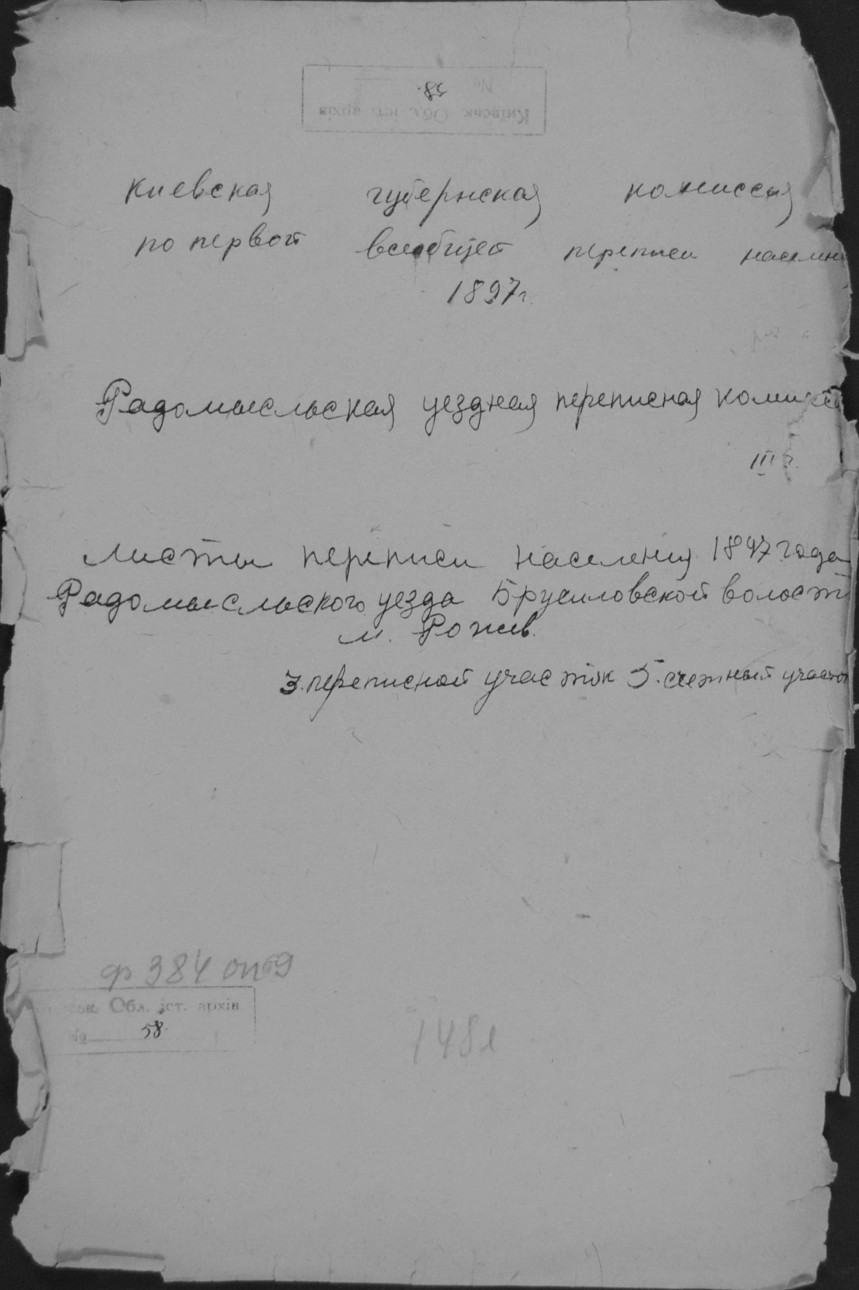 Київськ. Обл. іст. архів
№ 58.
Киевская губернская комиссия
по первой всеобщей переписи населени
1897 г.
Радомысльская уездная переписная комисси
III
листы переписи населения 1897 года
Радомысльского уезда Брусиловской волости
м. Рожев.
3. переписной участок 5. счетный участок
ф 384 оп 9
Обл. іст. архів
№ 58
148 л